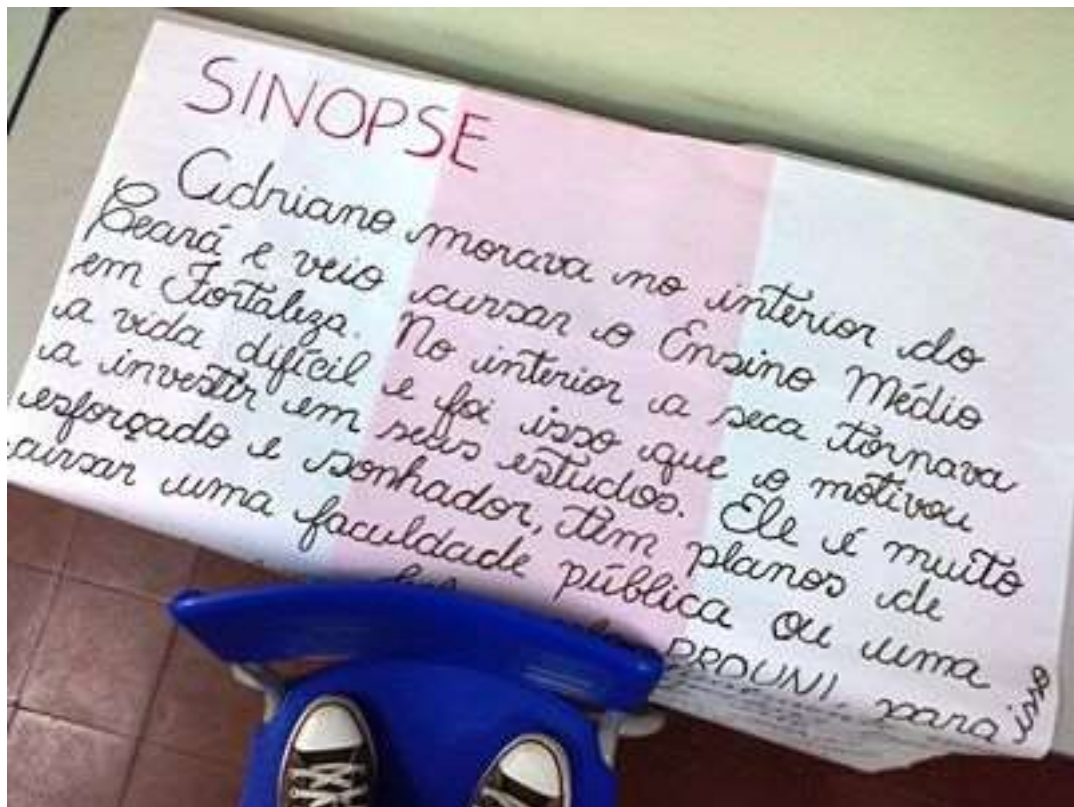 SINOPSE
Adriano morava no interior do
Ceará e veio cursar o Ensino Médio
em Fortaleza. No interior a seca tornava
a vida difícil e foi isso que o motivou
a investir em seus estudos. Ele é muito
esforçado e sonhador, tem planos de
cursar uma faculdade pública ou uma
PROUNI, para isso